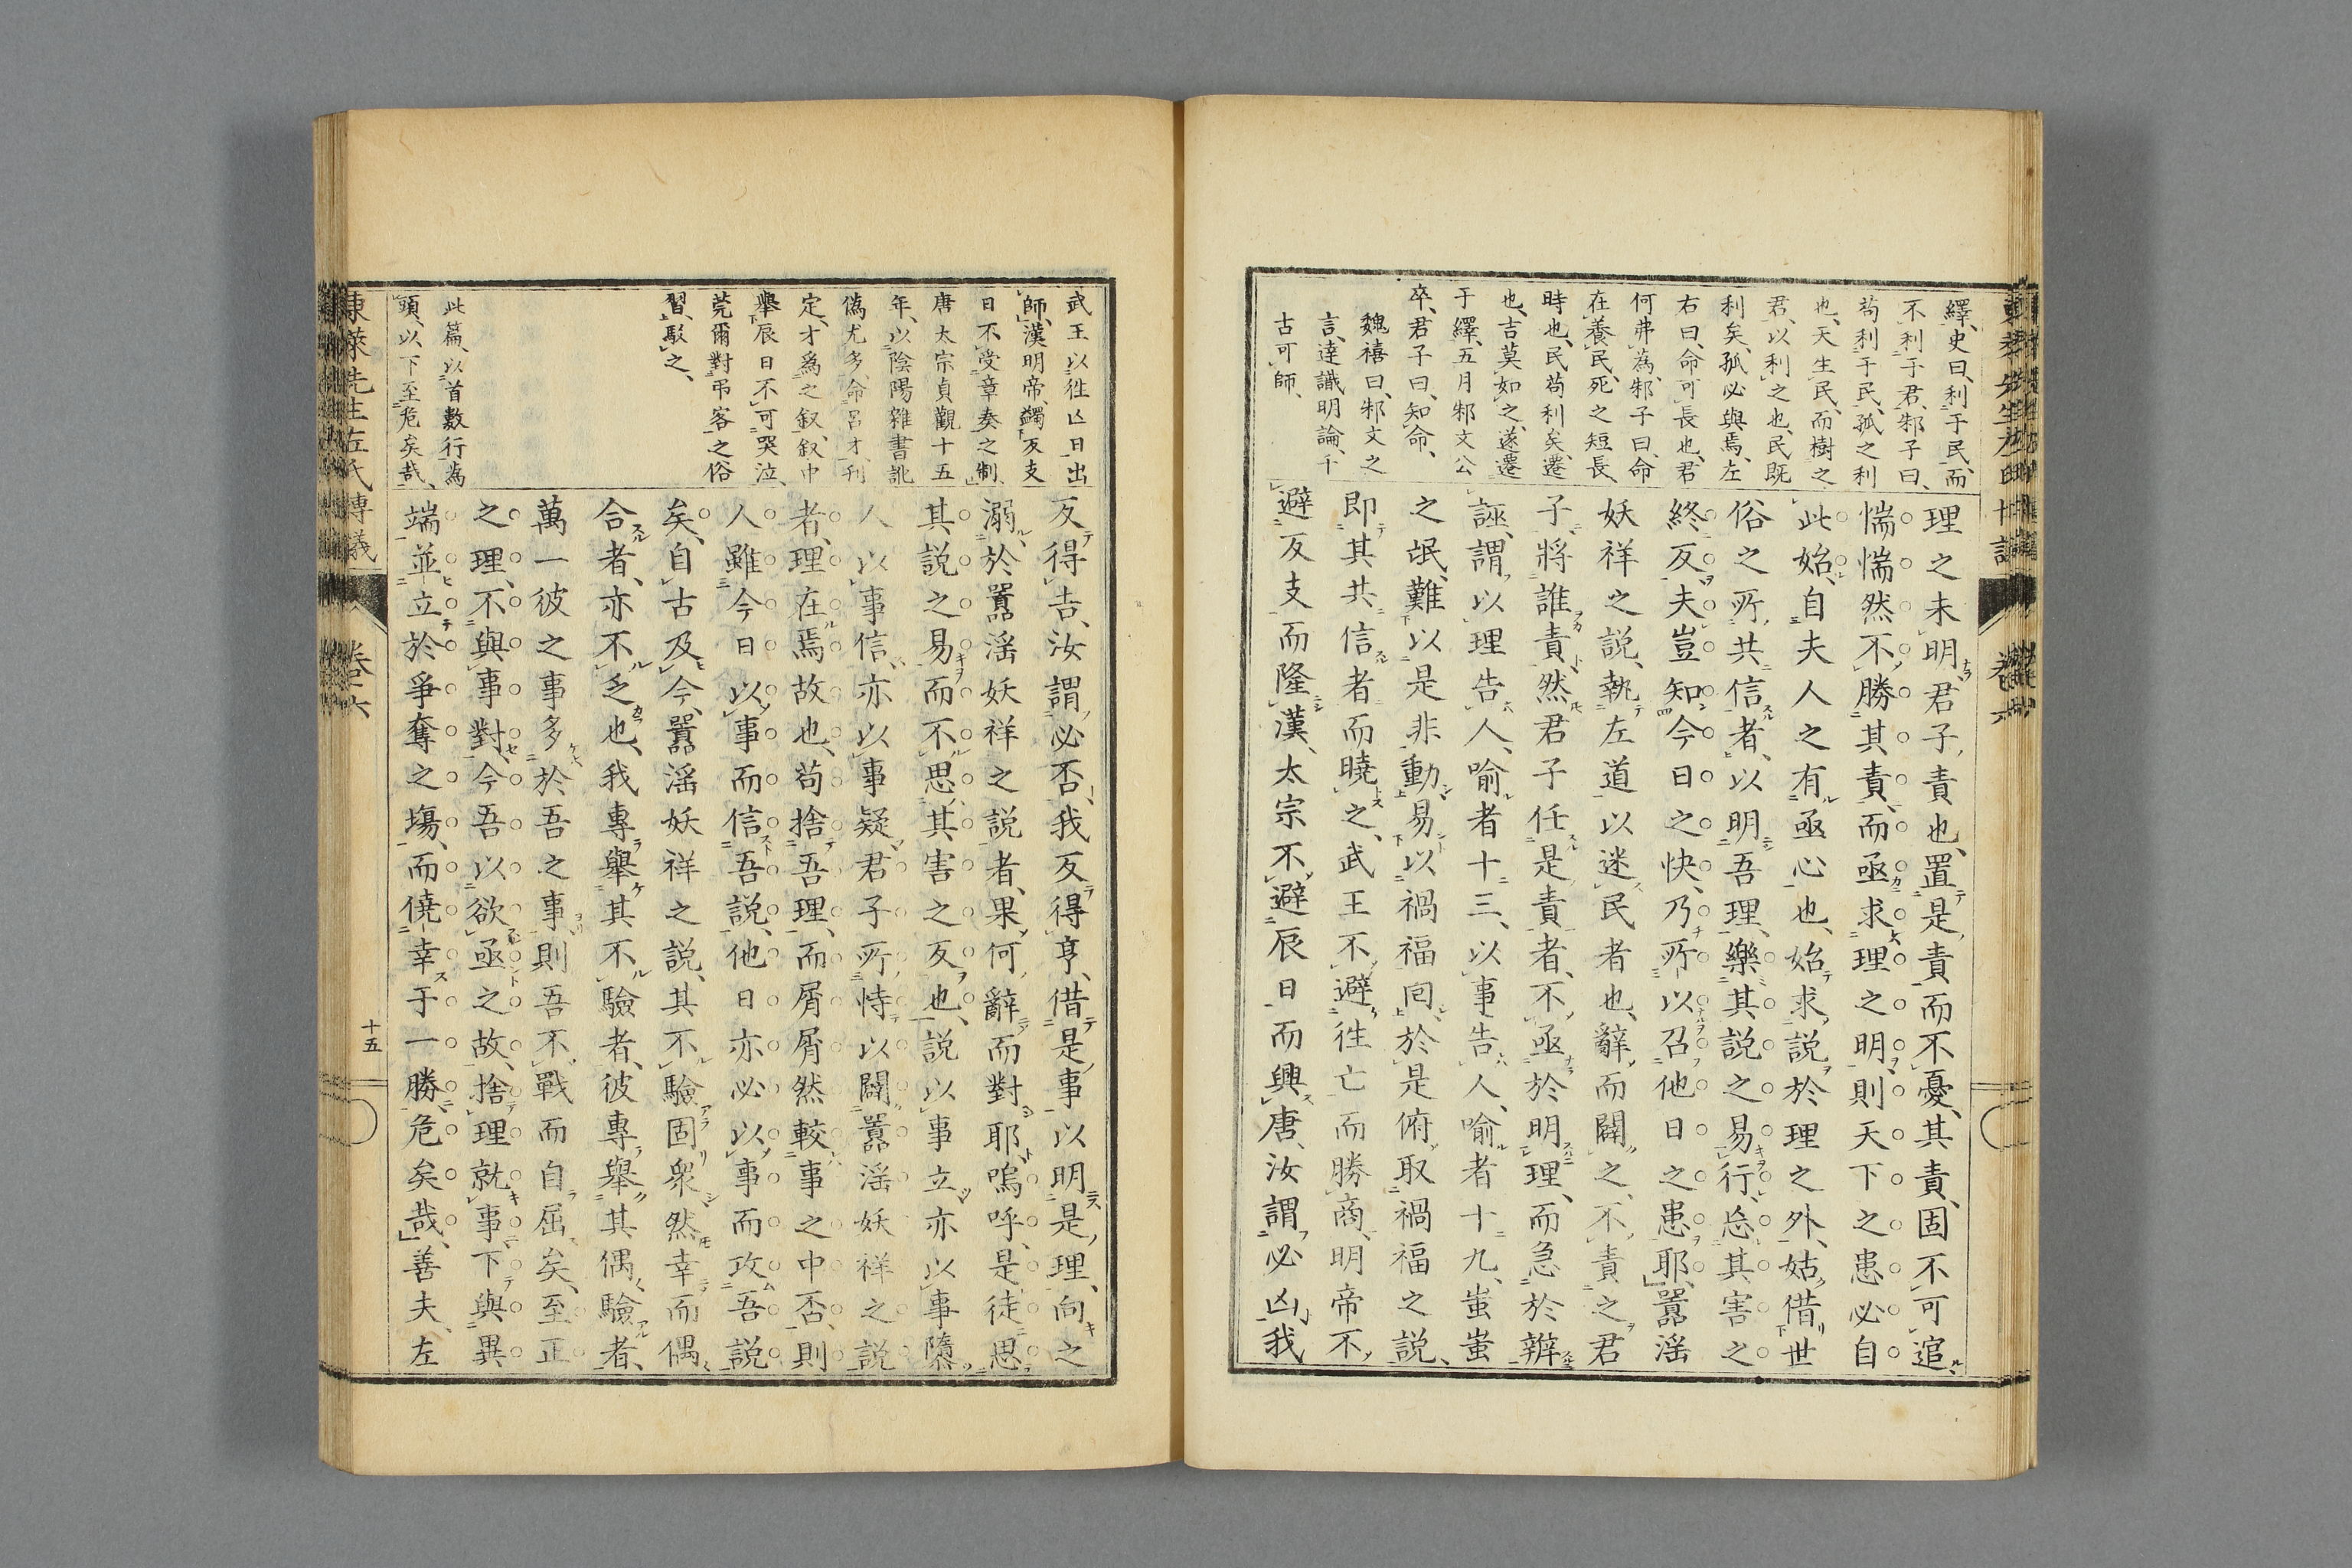 繹、史曰、利于民、而
不利于君、邾子曰、
苟利于民、孤之利
也、天生民、而樹之
君、以利之也、民既
利矣、孤必與焉、左
右曰、命可長也、君
何弗為、邾子曰、命
在養民、死之短長、
時也、民苟利矣、遷
也、吉莫如之、遂遷
于繹、五月邾文公
卒、君子曰、知命、
魏禧曰、邾文之
言、達識明論、千
古可師、
理之未明、君子責也、置是責而不憂、其責、固不可逭、
惴惴然不勝其責、而亟求理之明、則天下之患必自
此始、自夫人之有亟心也、始求説於理之外、姑借世
俗之所共信者、以明吾理、樂其説之易行、忘其害之
終反、夫豈知今日之快、乃所以召他日之患耶、嚚淫
妖祥之説、執左道以迷民者也、辭而闢之、不責之君
子、將誰責、然君子任是責者、不亟於明理、而急於辨
誣、謂以理告人、喻者十三、以事告人、喻者十九、蚩蚩
之氓、難以是非動、易以禍福回、於是俯取禍福之説、
即其共信者而曉之、武王不避往亡而勝商、明帝不
避反支而隆漢、太宗不避辰日而興唐、汝謂必凶、我
武王以徃亡日出
師、漢明帝、蠲反支
日不受章奏之制、
唐太宗貞觀十五
年、以陰陽雜書訛
偽尤多、命呂才、刊
定、才為之叙、叙中
擧辰日不可哭泣、
莞爾對弔客之俗
習、駁之、
此篇、以首數行為
頭、以下至危矣哉、
反得吉、汝謂必否、我反得亨、借是事以明是理、向之
溺於嚚淫妖祥之説者、果何辭而對耶、嗚呼、是徒思
其説之易而不思其害之反也、説以事立亦以事隳
人以事信、亦以事疑、君子所恃以闢嚚淫妖祥之説
者、理在焉故也、苟捨吾理、而屑屑然較事之中否、則
人雖今日以事而信吾説、他日亦必以事而攻吾説
矣、自古及今、嚚淫妖祥之説、其不驗固衆、然幸而偶
合者、亦不乏也、我專舉其不驗者、彼專舉其偶驗者、
萬一彼之事多於吾之事、則吾不戰而自屈矣、至正
之理、不與事對、今吾以欲亟之故、捨理就事、下與異
端並立於爭奪之塲、而僥幸于一勝、危矣哉、善夫、左
東萊先生左氏博議
卷六
十五